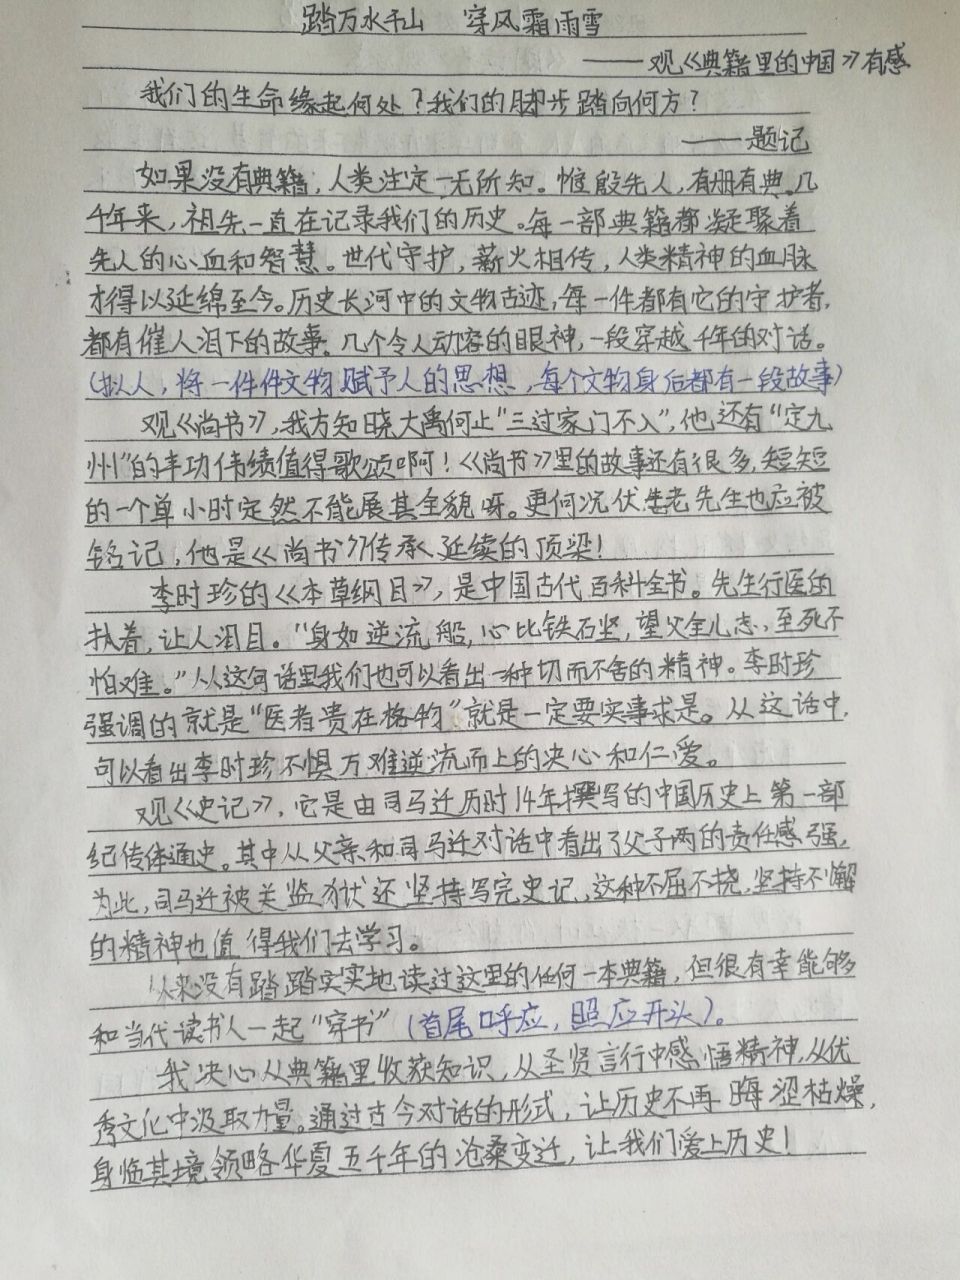 踏万水千山 穿风霜雨雪
——观《典籍里的中国》有感
我们的生命缘起何处?我们的脚步踏向何方?
——题记
如果没有典籍,人类注定一无所知。惟殷先人,有册有典。几
千年来,祖先一直在记录我们的历史。每一部典籍都凝聚着
先人的心血和智慧。世代守护,薪火相传,人类精神的血脉
才得以延绵至今。历史长河中的文物古迹,每一件都有它的守护者,
都有催人泪下的故事。几个令人动容的眼神,一段穿越千年的对话。
(拟人,将一件件文物赋予人的思想,每个文物身后都有一段故事)
观《尚书》,我方知晓大禹何止“三过家门不入”,他还有“定九
州”的丰功伟绩值得歌颂啊!《尚书》里的故事还有很多,短短
的一个单小时定然不能展其全貌呀。更何况伏生老先生也应被
铭记,他是《尚书》传承延续的顶梁!
李时珍的《本草纲目》,是中国古代百科全书。先生行医的
执着,让人泪目。“身如逆流船,心比铁石坚,望父全儿志,至死不
怕难。”从这句话里我们也可以看出一种切而不舍的精神。李时珍
强调的就是“医者贵在格物”就是一定要实事求是。从这话中,
可以看出李时珍不惧万难逆流而上的决心和仁爱。
观《史记》,它是由司马迁历时14年撰写的中国历史上第一部
纪传体通史。其中从父亲和司马迁对话中看出了父子两的责任感强,
为此,司马迁被关监狱还坚持写完史记,这种不屈不挠,坚持不懈
的精神也值得我们去学习。
从来没有踏踏实实地读过这里的任何一本典籍,但很有幸能够
和当代读书人一起“穿书”(首尾呼应,照应开头)。
我决心从典籍里收获知识,从圣贤言行中感悟精神,从优
秀文化中汲取力量。通过古今对话的形式,让历史不再晦涩枯燥,
身临其境领略华夏五千年的沧桑变迁,让我们爱上历史!